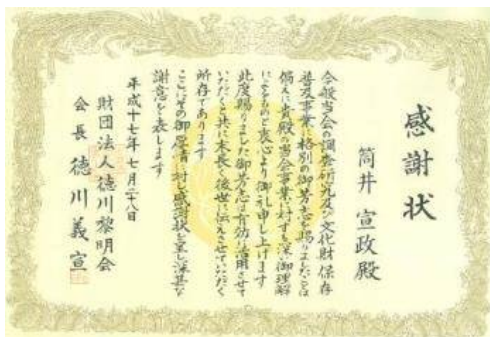 感謝状
筒井宣政殿
今般当会の調査研究及び文化財保存
普及事業に格別の御芳志を賜りましたことは
偏えに貴殿の当会事業に対する深い御理解
によるものと衷心より御礼申し上げます
此度賜りました御芳志は有効に活用させて
いただくと共に末長く後世に伝えさせていただく
所存であります
ここにその御厚情に対し感謝状を呈し深甚な
謝意を表します
平成十七年七月二十八日
財団法人徳川黎明会
会長徳川義宣